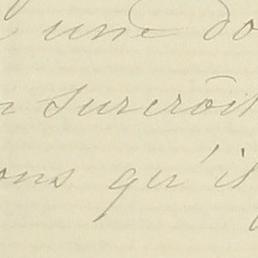 une do
n surcroît
ons qu'il